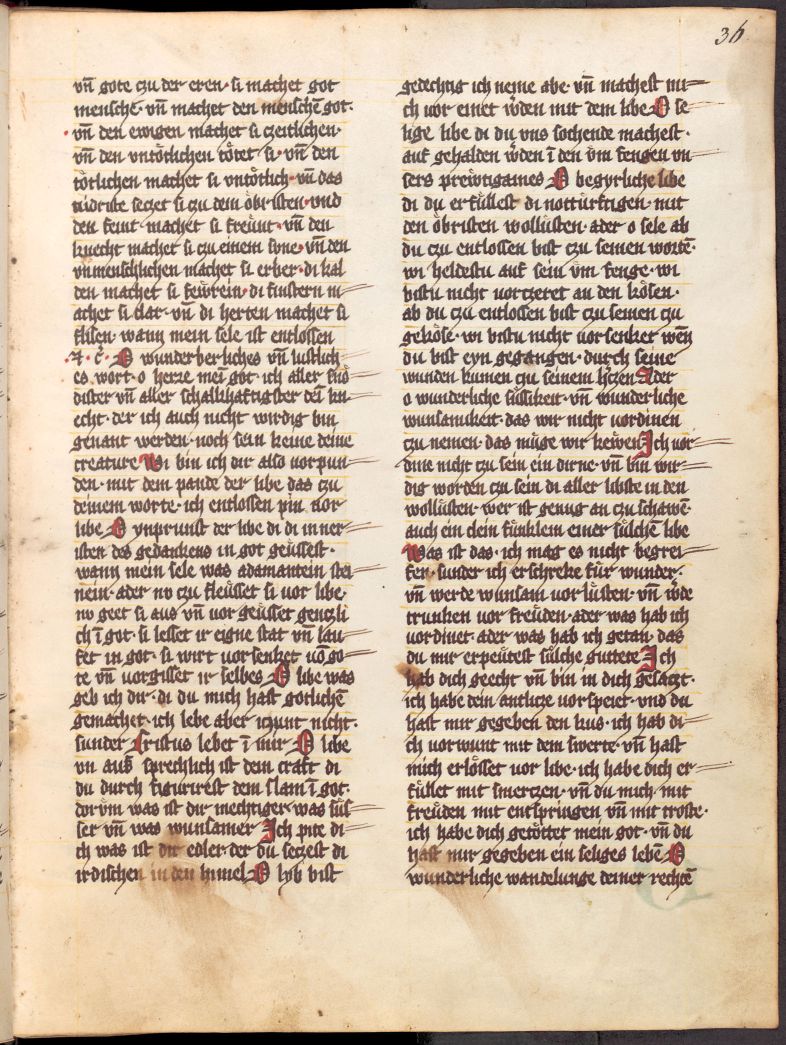 36
vn̄ gote czu der eren · si machet got
menschē · vn̄ machet den menschē got ·
vn̄ den ewigen machet si czeitlichen ·
vn̄ den vntötlichen tötet si · vn̄ den
tötlichen machet si vntötlich · vn̄ das
nidriste seczet si czu dem öbristen · vnd
den feint machet si freünt · vn̄ den
knecht machet si czu einem sone · vn̄ den
vnmenschlichen machet si erber · di kal
den machet si feẅrein · di finstern m
achet si clar · vn̄ di herten machet si
flisen · wann mein sele ist entlossen
⁊ · c̄ · O wunderberliches vn̄ lustlich
es wort · o herze mei͂ got · ich aller snö
dister vn̄ aller schalkhaftigster dei͂ kn
echt · der ich auch nicht wirdig bin
genant werden · noch sein keine deine
creature Wi bin ich dir also uorpun
den · mit dem pande der libe das czu
deinem worte · ich entlossen pin uor
libe O ynprunst der libe di di inner
isten des gedankens in got geüssest ·
wann mein sele was adamantein stei
nein · ader no czu fleüsset si uor libe ·
no geet si aus vn̄ vor geüsset genczli
ch ī got · si lesset ir eigne stat vn̄ lau
fet in got · si wirt uorsenket vō go
te vn̄ uorgisset ir selbes O libe was
geb ich dir · di du mich hast gotlichē
gemachet · ich lebe aber iczunt nicht ·
sunder Cristus lebet ī mir O libe
vn aus sprechlich ist dein craft di
du durch figurirest dem slam ī got ·
dorūm was ist dir mechtiger · was süs
ser vn̄ was wunsamer Ich pite di
ch was ist dir edler · der du seczest di
irdischen in den himel O lyb bist
gedechtig ich neme abe · vn̄ machest mi
ch uor einet w̄den mit dem libe O se
lige libe di du vns sochende machest ·
auf gehalden w̄den ī den vm fengen vn
sers prewtigames O begyrliche libe
di du erfüllest di notturftigen · mit
den öbristen wollüsten · ader o sele ab
du czu entlossen bist czu seinen wortē ·
wi heldestu auf sein vm fenge · wi
bistu nicht uorczeret an den kösen ·
ab du czu entlossen bist czu seinen czu
gekose · wi bistu nicht uorsenket wen̄
du bist eyn gegangen · durch seine
wunden kumen czu seinem h̄czen Ader
o wunderliche süssikeit · vn̄ wunderliche
wunsamikeit · das wir nicht uordinen
czu nemen · das müge wir keẅen Ich uor
dine nicht czu sein ein dirne · vn̄ bin wir
dig worden czu sein di aller libste in den
wollüsten · wer ist genug an czu schawē ·
auch ein clein fünklein einer sülchē libe
Was ist das · ich mag es nicht begrei
fen · sunder ich erschreke für wunder ·
vn̄ werde wunsam uor lüsten · vn̄ w̄de
trunken uor freüden · ader was hab ich
uordinet · ader was hab ich getan · das
du mir erpeütest sülche guttete Ich
hab dich geecht vn̄ bin in dich gesaczt ·
ich habe dein antlicze uorspeiet · vnd du
hast mir gegeben den kus · ich hab di
ch uorwunt mit dem swerte · vn̄ hast
mich erlösset uor libe · ich habe dich er
füllet mit smerczen · vn̄ du mich · mit
freüden mit entspringen vn̄ mit troste ·
ich habe dich getöttet mein got · vn̄ du
hast mir gegeben ein seliges lebē O
wunderliche wandelunge deiner rechtē